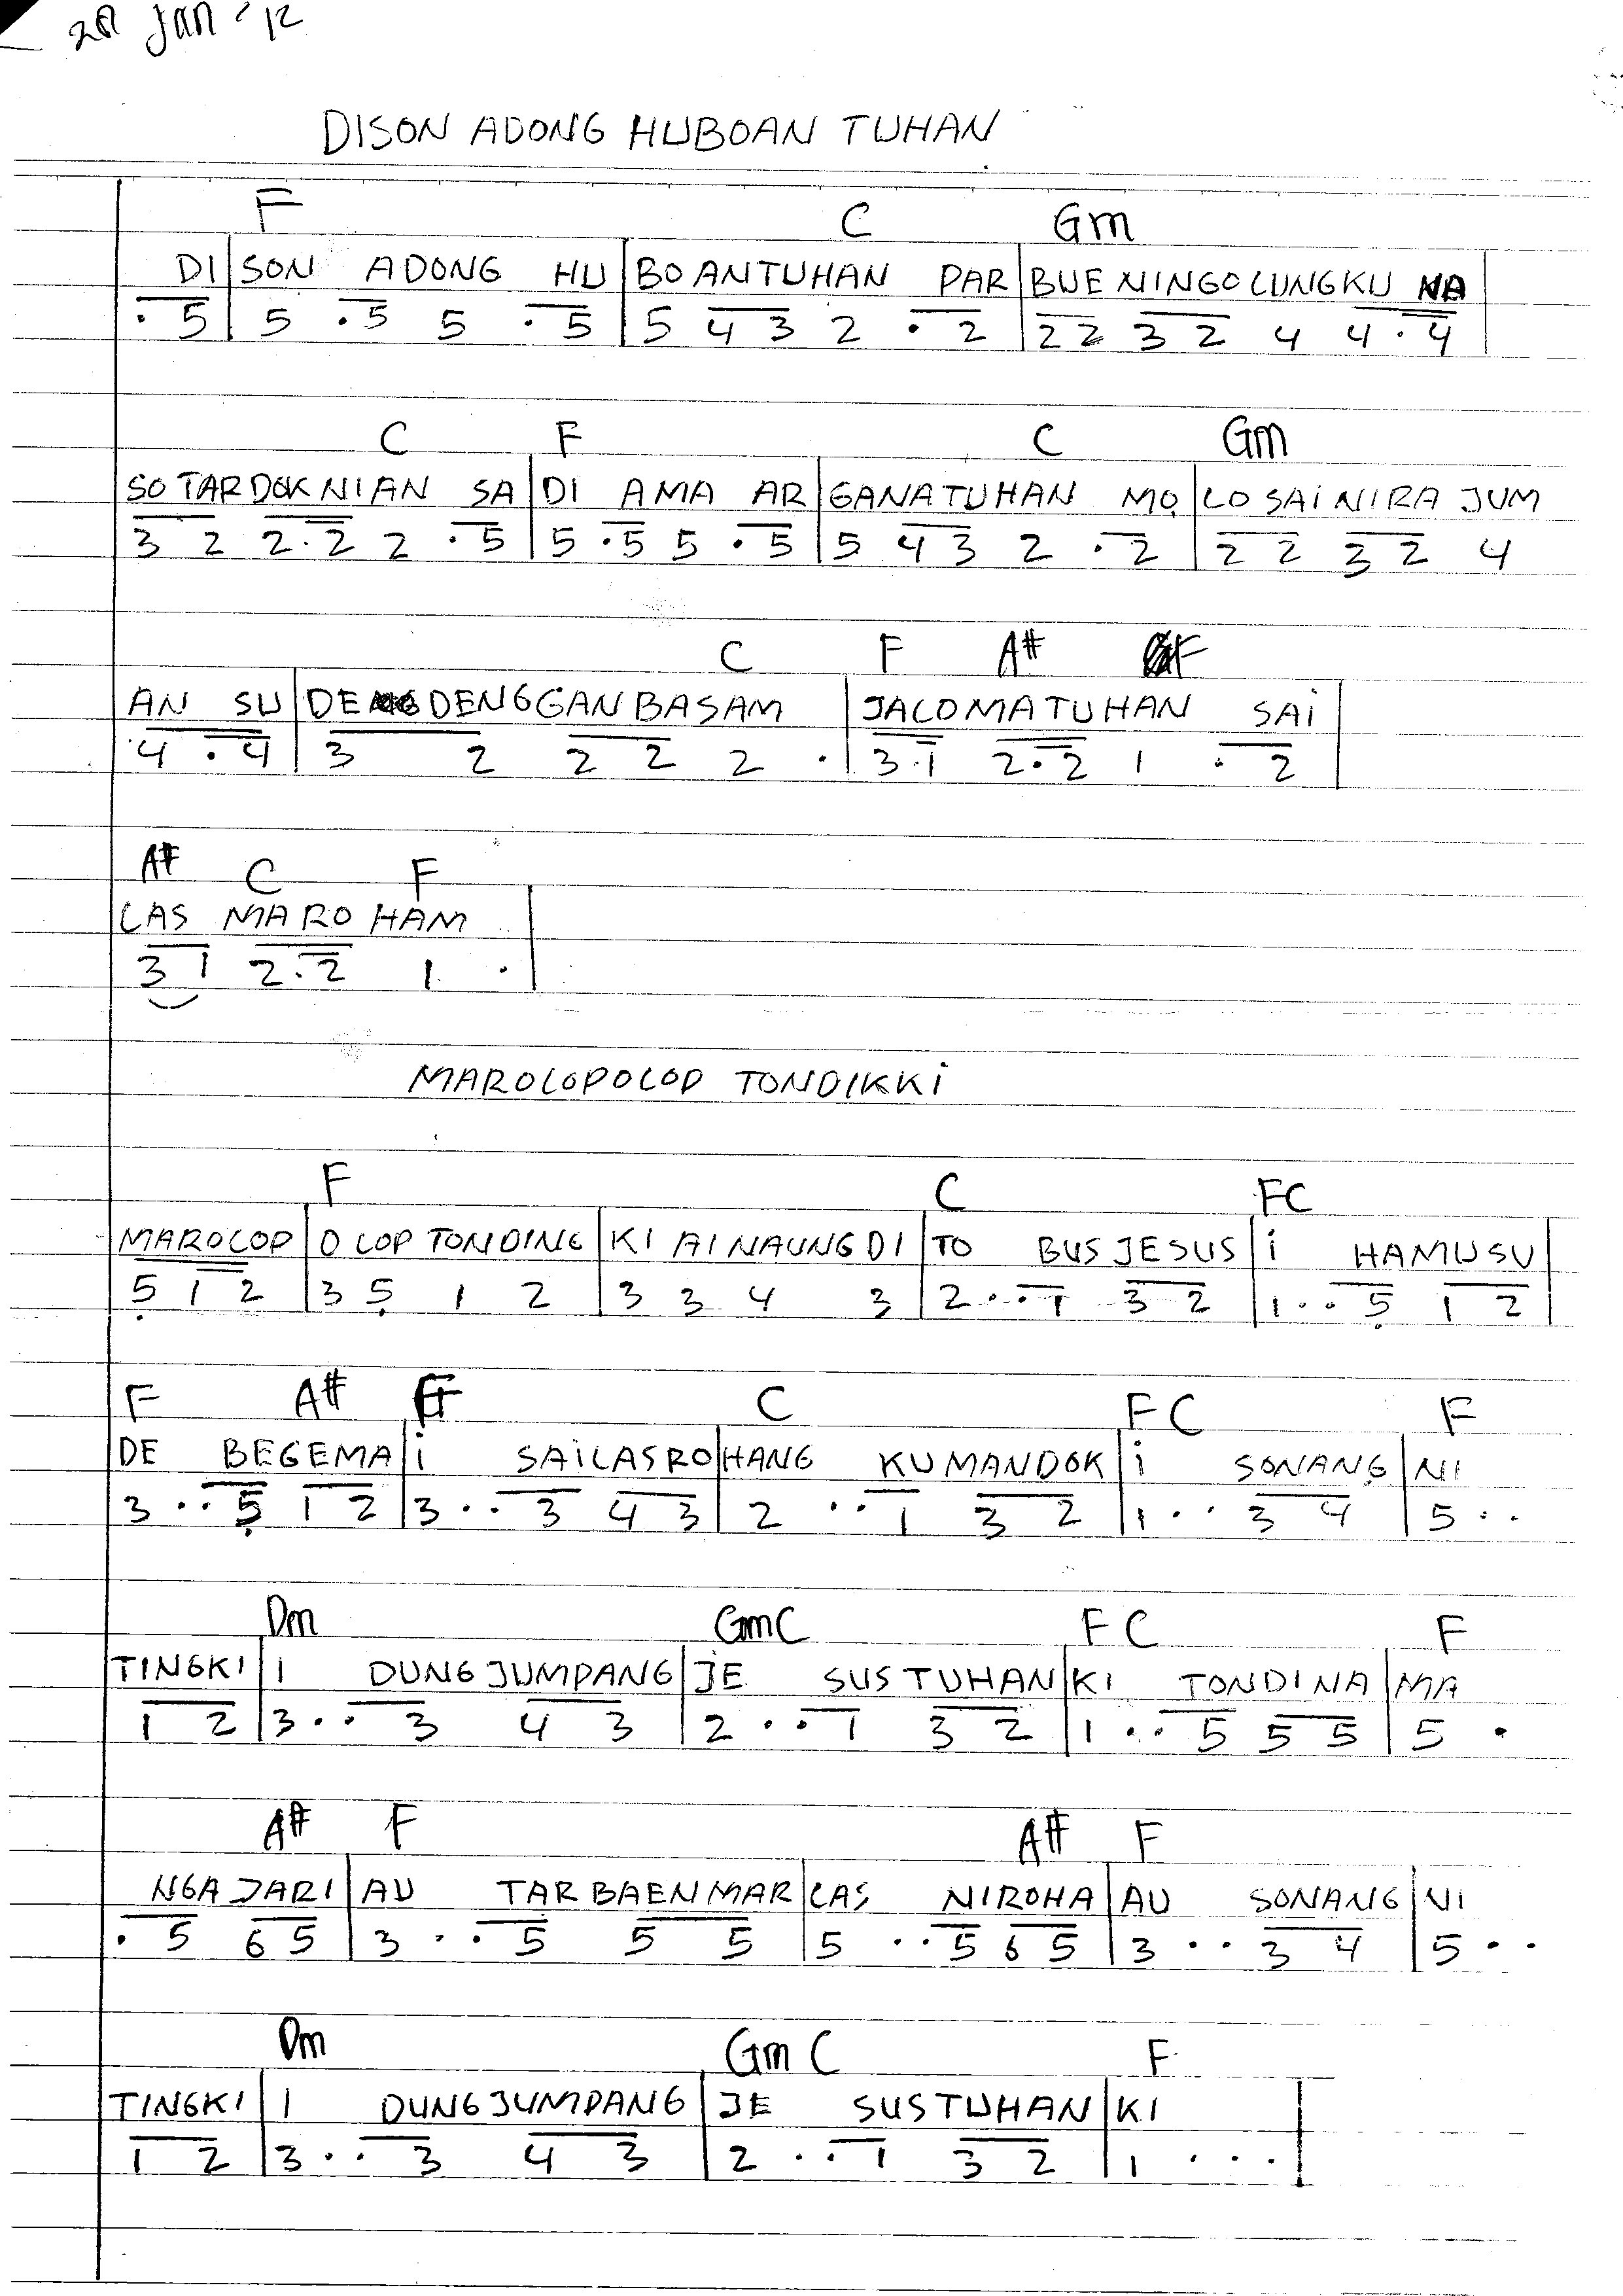 28 JAN '12
DISON ADONG HUBOAN TUHAN
F C Gm
DI | SON ADONG HU | BOANTUHAN PAR | BUE NINGOLUNGKU NA |
. 5 | 5 . 5 5 . 5 | 5 4 3 2 . 2 | 2 2 3 2 4 4 . 4 |
C F C Gm
SO TARDOK NIAN SA | DI AMA AR | GANATUHAN MO | LO SAI NIRA JUM
3 2 2 . 2 2 . 5 | 5 . 5 5 . 5 | 5 4 3 2 . 2 | 2 2 3 2 4
C F A# F
AN SU | DE DENGGANBASAM | JALOMATUHAN SAI |
4 . 4 | 3 2 2 2 2 . | 3 . 1 2 . 2 1 . 2 |
A# C F
LAS MAROHAM |
3 1 2 . 2 1 . |
MAROLOPOLOP TONDIKKI
F C FC
MAROLOP | OLOP TONDING | KI AINAUNGDI | TO BUS JESUS | i HAMUSU |
5 1 2 | 3 5 1 2 | 3 3 4 3 | 2 . . 1 3 2 | 1 . . 5 1 2 |
F A# F C F C F
DE BEGEMA | i SAILASRO | HANG KUMANDOK | i SONANG | NI
3 . . 5 1 2 | 3 . . 3 4 3 | 2 . . 1 3 2 | 1 . . 3 4 | 5 . .
Dm Gm C F C F
TINGKI | I DUNG JUMPANG | JE SUS TUHAN | KI TONDINA | MA
1 2 | 3 . . 3 4 3 | 2 . . 1 3 2 | 1 . . 5 5 5 | 5 .
A# F A# F
NGAJARI | AU TARBAENMAR | LAS NIROHA | AU SONANG | NI
. 5 6 5 | 3 . . 5 5 5 | 5 . . 5 6 5 | 3 . . 3 4 | 5 . .
Dm Gm C F
TINGKI | I DUNG JUMPANG | JE SUS TUHAN | KI |
1 2 | 3 . . 3 4 3 | 2 . . 1 3 2 | 1 . . . |